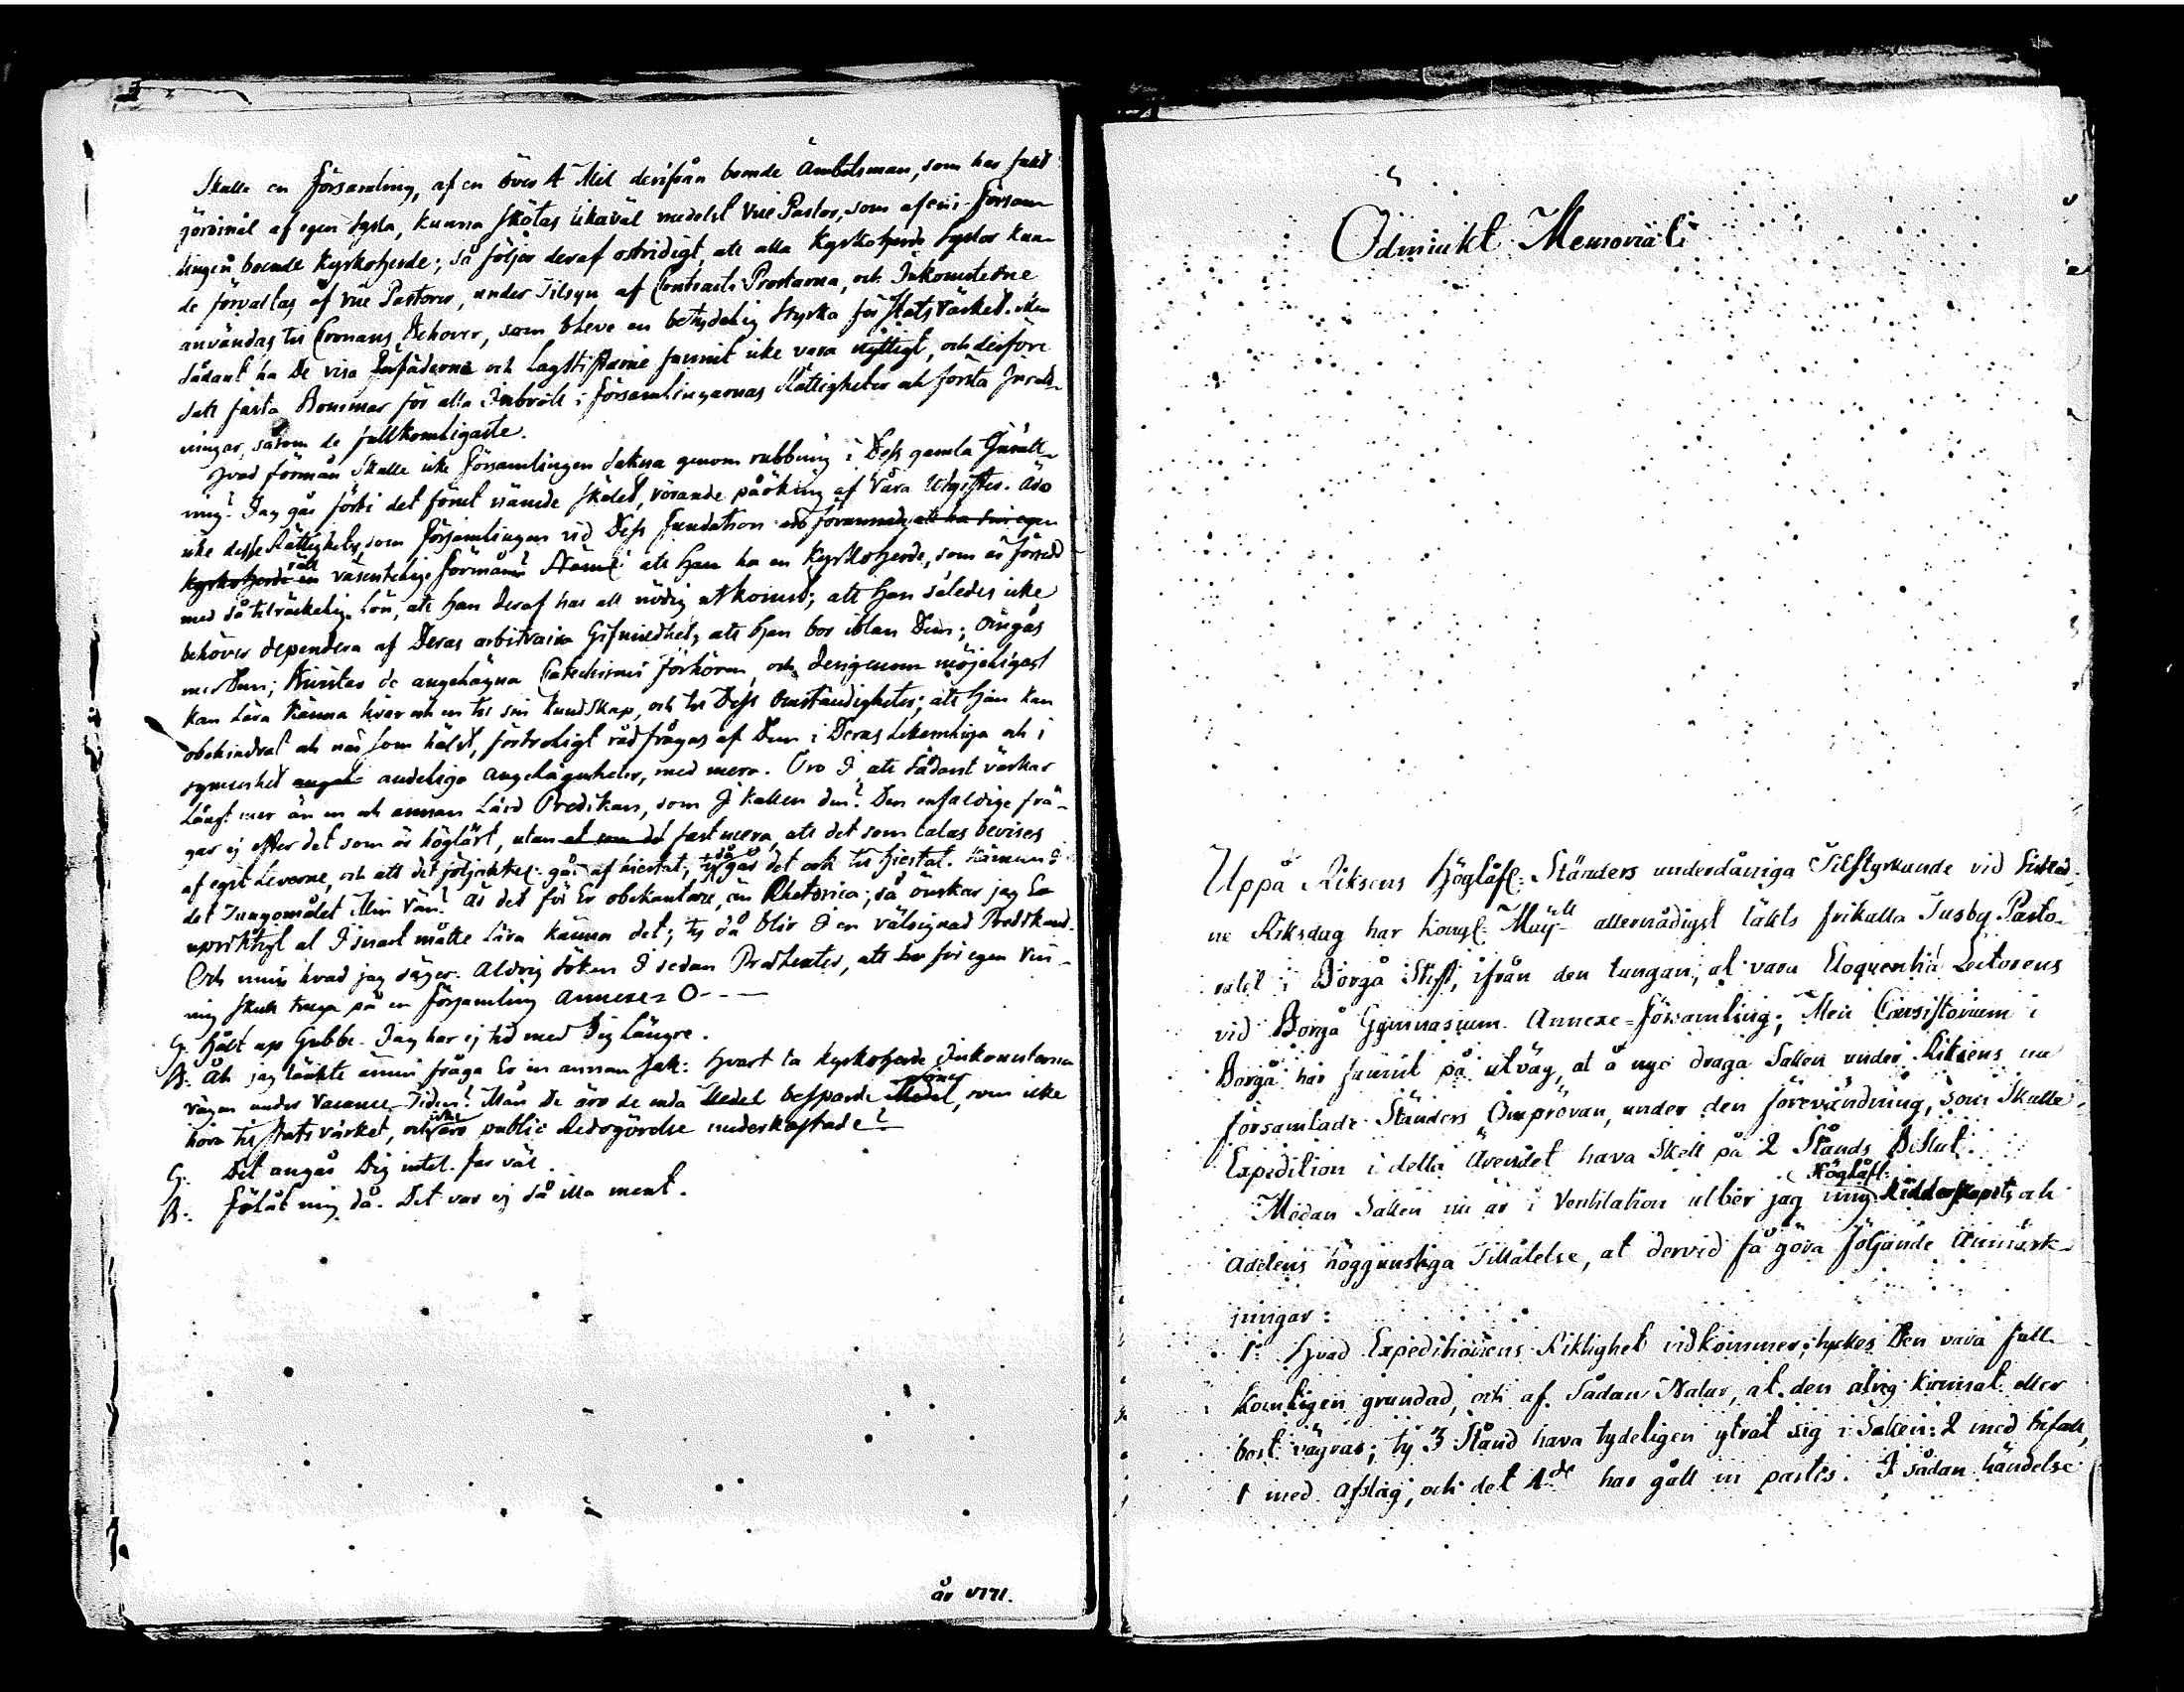 Skulle en Församling, af en över 4 Mil derifrån boende Ämbetsman, som har fullt
göromål af egen Sysla, kunna skötas likaväl medelst Vice Pastor, som af en i Försam
lingen boende Kyrkoherde; så följer deraf ostridigt, att alla Kyrkoherde Syslor kun-
de förvaltas af Vice Pastorer, under Tilsyn af Contracts Prostarna, och Inkomsterne
användas til Cronans Behover, som bleve en betydelig Styrka för Statsvärket. Men
Sådant ha De visa Förfäderne och Lagstiftarne funnit icke vara nyttigt, och derföre
satt fasta Bommar för alla Inbrott i Församlingarnas Rättigheter och första Inrätt-
ningar, såsom de fullkomligaste.
Hvad förmån skulle icke Församlingen sakna genom rubbning i Dess gamla Inrätt-
ning? Jag går förbi det förut nämde skälet, rörande påökning af Våra Utgifter. Äro
icke desse Rättigheter, som Församlingen vid Dess Fundation förunnats att ha sin egen
Kyrkoherde en rätt väsentelige förmåner? Näml: att Han ha en Kyrkoherde, som är försedd
med så tilräckelig Lön, att Han deraf har all nödig utkomst; att Han således icke
behöver dependera af Deras arbitraira Gifmildhet; att Han bor iblan Dem; Omgås
med Dem; Anstas de angelägna Catechismi förhören, och derigenom möjeligast
kan lära känna hvar och en til sin kundskap, och til Dess Omständigheter; att Han kan
obehindrat och när som hälst, förtroligt rådfrågas af Dem i Deras Lekamliga och i
synnerhet andeliga angelägenheter, med mera. Tro I, att sådant värkar
långt mer än en och annan Lärd Predikan, som I kallen den? Den enfaldige frå-
gar ej efter det som är höglärt, utan fast mera, att det som talas bevises
af eget Leverne, och att det går af hiertat, så gås det och til hiertat. Kännen I
det Tungomålet Min Vän? Är det för Er obekantare, än Rhetorica; så önskar jag Er
uprichtigt at I snart måtte lära känna det; ty då blir I en välsignad Predikant.
Och mins hvad jag säger. Aldrig söken I sedan Prætexter, att för egen Vin-
ning skull truga på en Församling annexe=O---
G. Håll up Gubbe. Jag har ej tid med Dig längre.
B. Åh jag tänkte ännu fråga Er en annan sak: Hvart ta Kyrkoherde Inkomsterna
vägen under Vacance Tiden? Mån De äro de enda besparde, som icke
höra til Statsvärket, och icke äro public Redogörelse underkastade?
G. Det angår Dig intet. Far väl.
B. Förlåt mig då. Det var ej så illa ment.
år 1771.
Ödmiukt Memorial:
Uppå Riksens Höglåfl: Ständers underdåniga Tilstyrkande vid sistled-
ne Riksdag har Kongl: Maÿtt allernådigst täkts frikalla Tusby Pasto-
ratet i Borgå Stift, ifrån den tungan, at vara Eloquentiæ Lectorens
vid Borgå Gymnasium Annexe=Församling; Men Consistorium i
Borgå har funnit på utväg, at å nyo draga Saken under Riksens nu
församlade Ständers Ompröfvan, under den förevändning, som skulle
Expedition i detta Ärendet hava skett på 2 Stånds Beslut.
Medan Saken nu är i Ventilation utber jag mig Höglåfl: Ridderskapets och
Adelens höggunstiga Tillåtelse, at dervid få göra följande Anmärk-
ningar:
1:o Hvad Expeditionens Riktighet vidkommer; tyckes Den vara full
komligen grundad, och af sådan Natur, at den alrig kunnat eller
bort vägras; ty 3 Stånd hava tydeligen ytrat sig i Saken: 2 med bifall,
1 med Afslag, och det 4de har gått in partes. I sådan händelse